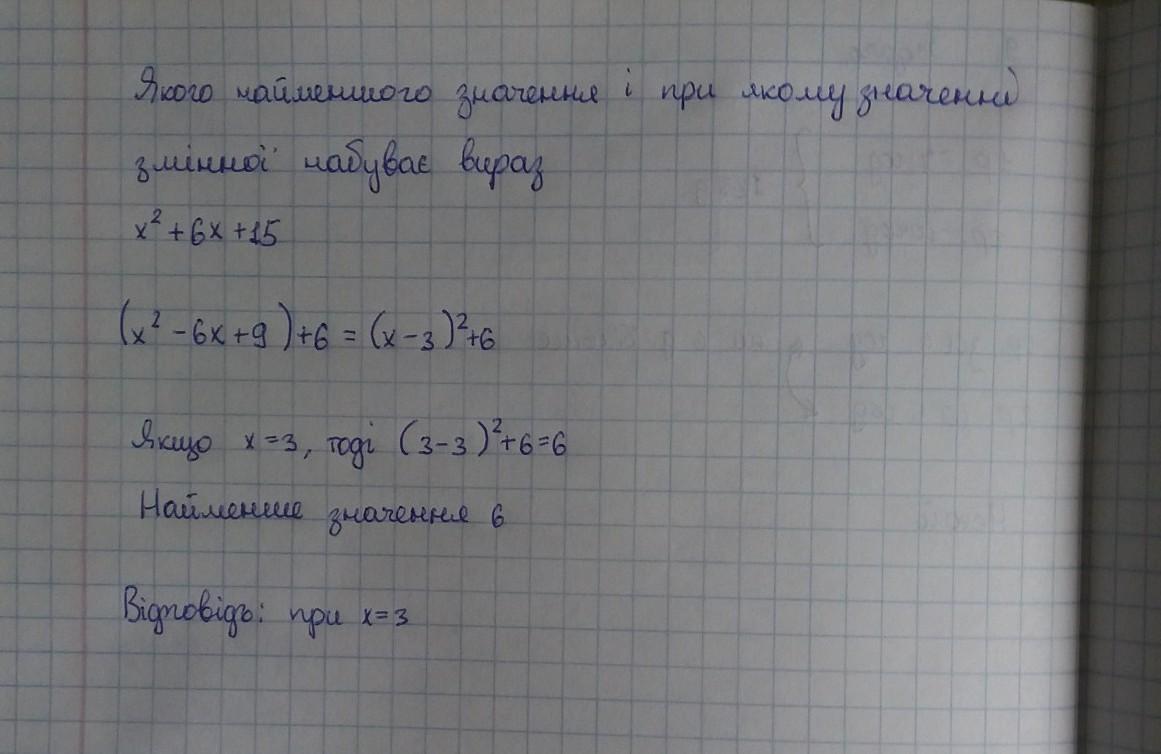 Якого найменшого значення і при якому значенні
змінної набуває вираз
x² + 6x + 15
(x² - 6x + 9) + 6 = (x - 3)² + 6
Якщо x = 3, тоді (3 - 3)² + 6 = 6
Найменше значення 6
Відповідь: при x = 3